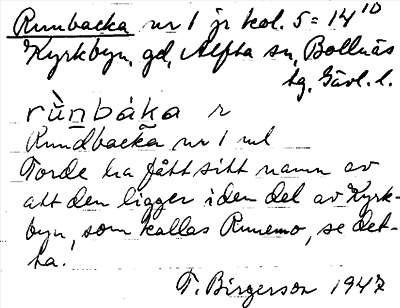 Runbacka nr 1 jr kol. 5 = 14 10
Kyrkbyn, gd, Alfta sn, Bollnäs
tg. Gävl. l.
rùnbáka r
Rundbacka nr 1 ml
Torde ha fått sitt namn av
att den ligger i den del av Kyrk-
byn, som kallas Runemo, se det-
ta.
T. Birgerson 1947